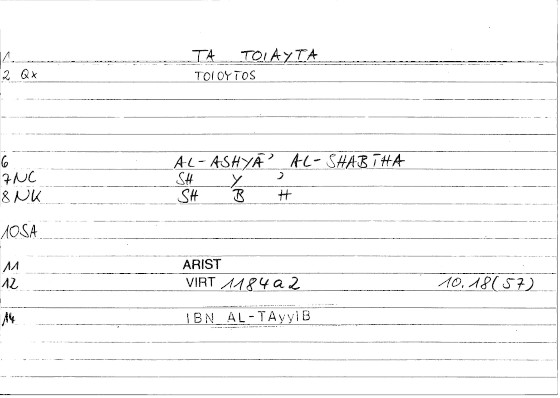 1 TA TOIAYTA
2 Qx TOIOYTOS
6 AL-ASHYĀʾ AL-SHABĪHA
7NC SH Y ʾ
8NK SH B H
10SA
11 ARIST
12 VIRT 1184a2 10.18(57)
14 IBN AL-TAyyIB